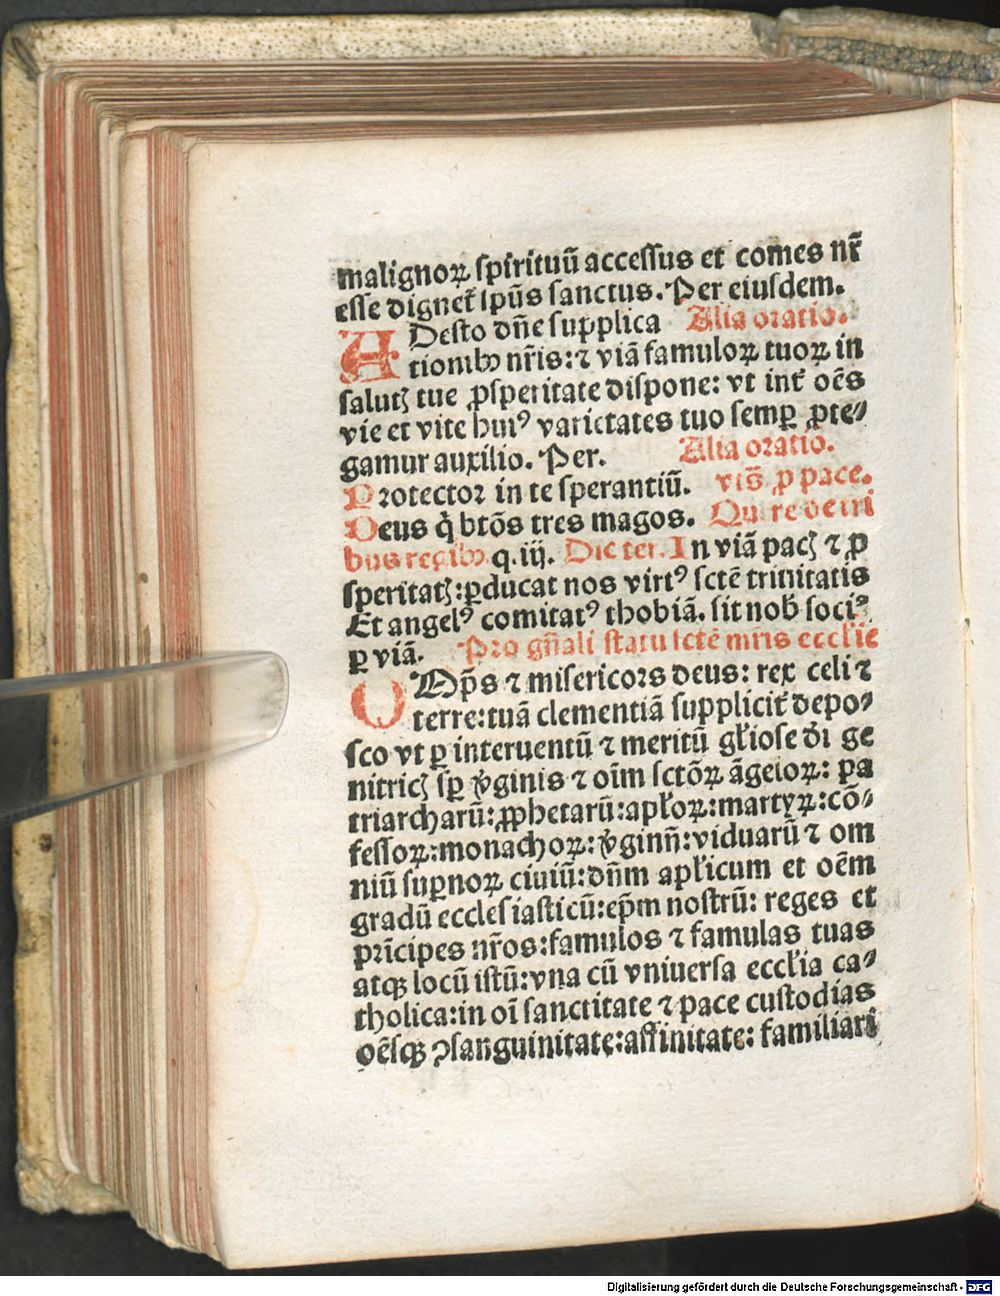 malignoꝝ spirituū accessus et comes nr̄
esse dignet̄ spūs sanctus. Per eiusdem.
ADesto dn̄e supplica Alia oratio.
tionibꝫ nr̄is: ⁊ viā famuloꝝ tuoꝝ in
salutꝫ tue ꝓsperitate dispone: vt int̄ oēs
vie et vite huiꝰ varietates tuo semꝑ ꝓte⸗
gamur auxilio. Per. Alia oratio.
Protector in te sperantiū. ꝓ pace.
Deus q̄ btōs tres magos. Quire de tri
bus regibꝫ. q. iij. Dic ter. In viā pacꝫ ⁊ ꝓ
speritatꝫ: ꝑducat nos virtꝰ sctē trinitatis
Et angelꝰ comitatꝰ thobiā. sit nob̄ sociꝰ
ꝑ viā. Pro gn̄ali statu sctē mr̄is eccl̄ie
OMp̄s ⁊ misericors deus: rex celi ⁊
terre: tuā clementiā supplicit̄ depo⸗
sco vt ꝑ interuentū ⁊ meritū gl̄iose di ge
nitricꝫ sꝑ v̄ginis ⁊ oīm sctōꝝ āgeloꝝ: pa
triarcharū: ꝓphetarū: apl̄oꝝ: martyꝝ: cō⸗
fessoꝝ: monachoꝝ: v̄ginn̄: viduarū ⁊ om
niū suꝑnoꝝ ciuiū: dn̄m apl̄icum et oēm
gradū ecclesiasticū: ep̄m nostrū: reges et
prīcipes nr̄os: famulos ⁊ famulas tuas
atqꝫ locū istū: vna cū vniuersa eccl̄ia ca⸗
tholica: in oī sanctitate ⁊ pace custodias
oēsqꝫ ꝯsanguinitate: affinitate: familiari
Digitalisierung gefördert durch die Deutsche Forschungsgemeinschaft - DFG